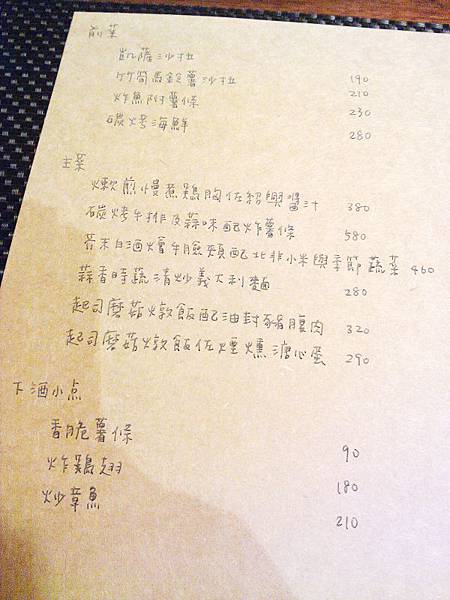 前菜
凱薩沙拉 190
竹筍馬鈴薯沙拉 210
炸魚附薯條 230
碳烤海鮮 280
主菜
煉煎慢煮鷄胸佐紹興醬汁 380
碳烤牛排及蒜味配炸薯條 580
芥末白酒燴牛臉頰配北非小米與季節蔬菜 460
蒜香時蔬清炒義大利麵 280
起司蘑菇燉飯配油封豬腹肉 320
起司蘑菇燉飯佐煙燻溏心蛋 290
下酒小点
香脆薯條 90
炸鷄翅 180
炒章魚 210